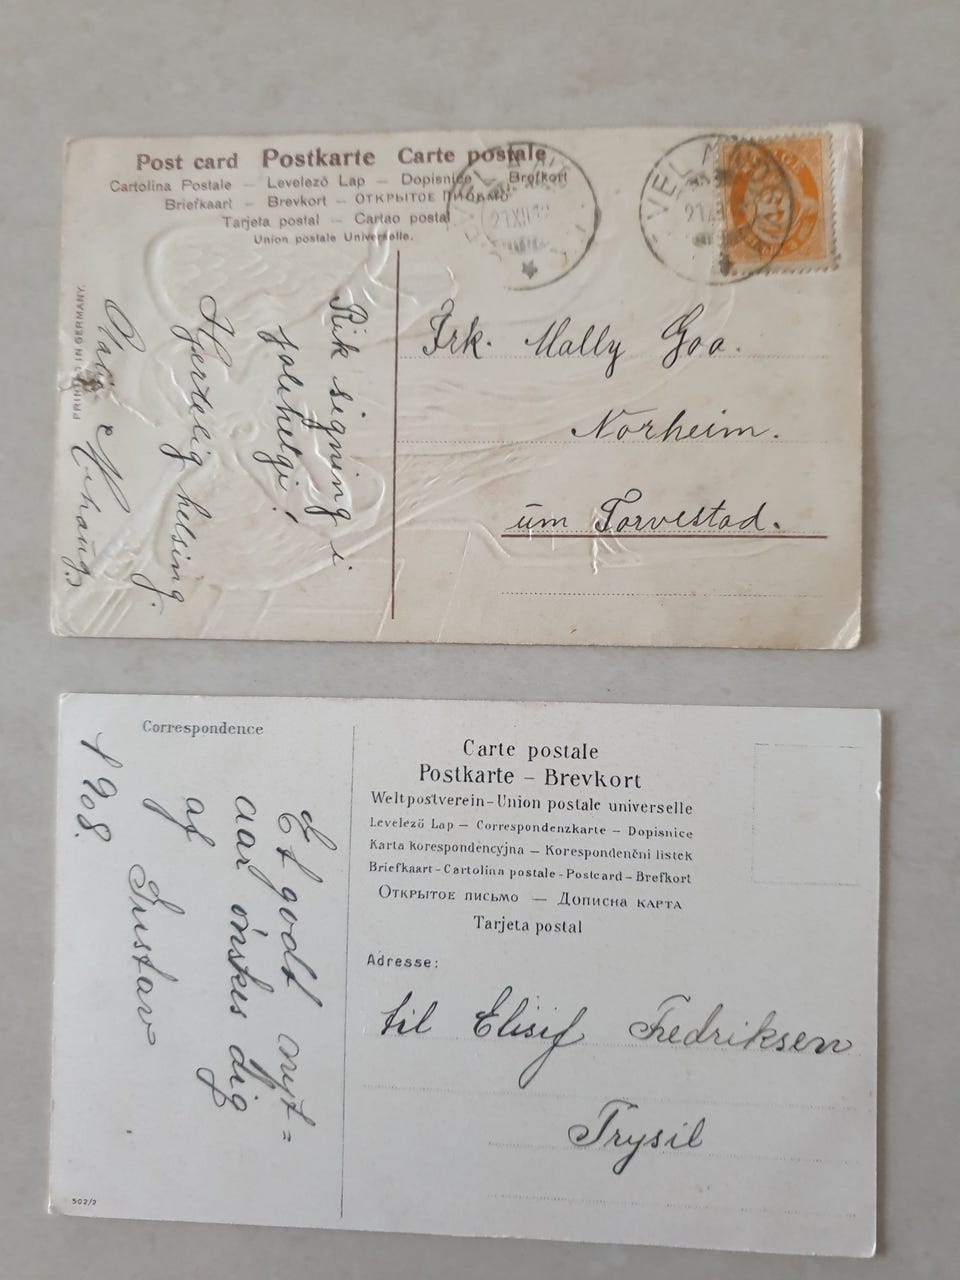 Post card Postkarte Carte postale
Cartolina Postale – Levelező Lap – Dopisnice – Brefkort
Briefkaart – Brevkort – ОТКРЫТОЕ ПИСЬМО
Tarjeta postal – Cartao postal
Union postale Universelle.
PRINTED IN GERMANY.
Rik signing i
jolehelgi!
Hjertelig helsing.
Olava
Frk. Mally Goa.
Norheim.
um Torvestad.
Correspondence
Et godt nyt=
aar ønskes dig
af
Gustav
1908.
502/2
Carte postale
Postkarte – Brevkort
Weltpostverein – Union postale universelle
Levelező Lap – Correspondenzkarte – Dopisnice
Karta korespondencyjna – Korespondenční listek
Briefkaart - Cartolina postale - Postcard - Brefkort
Открытое письмо — Дописна карта
Tarjeta postal
Adresse:
til Elisif Fredriksen
Trysil